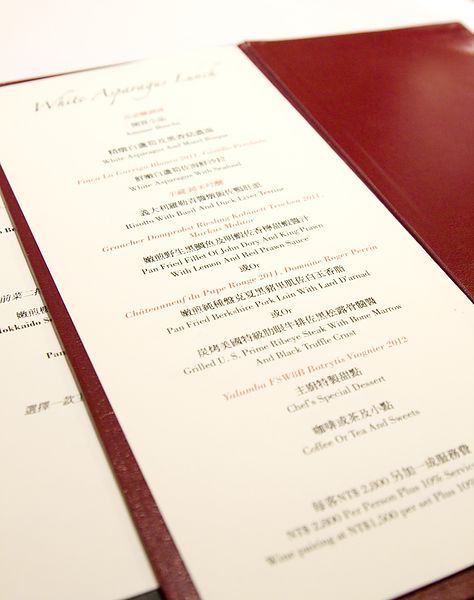 White Asparagus Lunch
Amuse Bouche
精燉白蘆筍及黑香菇濃湯
White Asparagus And Morel Bisque
Finca La Garriga Blanco 2011, Castillo Perelada
鮮嫩白蘆筍佐海鮮沙拉
White Asparagus With Seafood
義大利羅勒青醬燉飯佐鴨肝凍
Risotto With Basil And Duck Liver Terrine
Graacher Domprobst Riesling Kabinett Trocken 2011,
Markus Molitor
Pan Fried Fillet Of John Dory And King Prawn
With Lemon And Red Prawn Sauce
或Or
Châteauneuf du Pape Rouge 2011, Domaine Roger Perrin
Pan Fried Berkshire Pork Loin With Lard D'arnad
或Or
炭烤美國特級肋眼牛排佐黑松露骨髓醬
Grilled U. S. Prime Ribeye Steak With Bone Marrow
And Black Truffle Crust
Yalumba FSW8B Botrytis Viognier 2012
主廚特製甜點
Chef's Special Dessert
咖啡或茶及小點
Coffee Or Tea And Sweets
每客NT$ 2,800 另加一成服務費
NT$ 2,800 Per Person Plus 10% Servi
Wine pairing at NT$1,500 per set Plus 10%
前菜二
Hokkaido
Pan
選擇一款